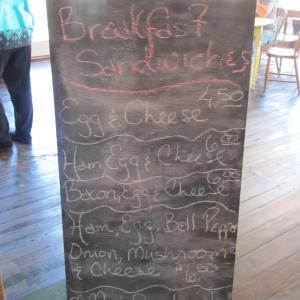 Breakfast
Sandwiches
4.50
Egg & Cheese
6.00
Ham, Egg & Cheese
6.00
Bacon, Egg & Cheese
Ham, Egg, Bell Pepper
Onion, Mushroom
& Cheese $6.00